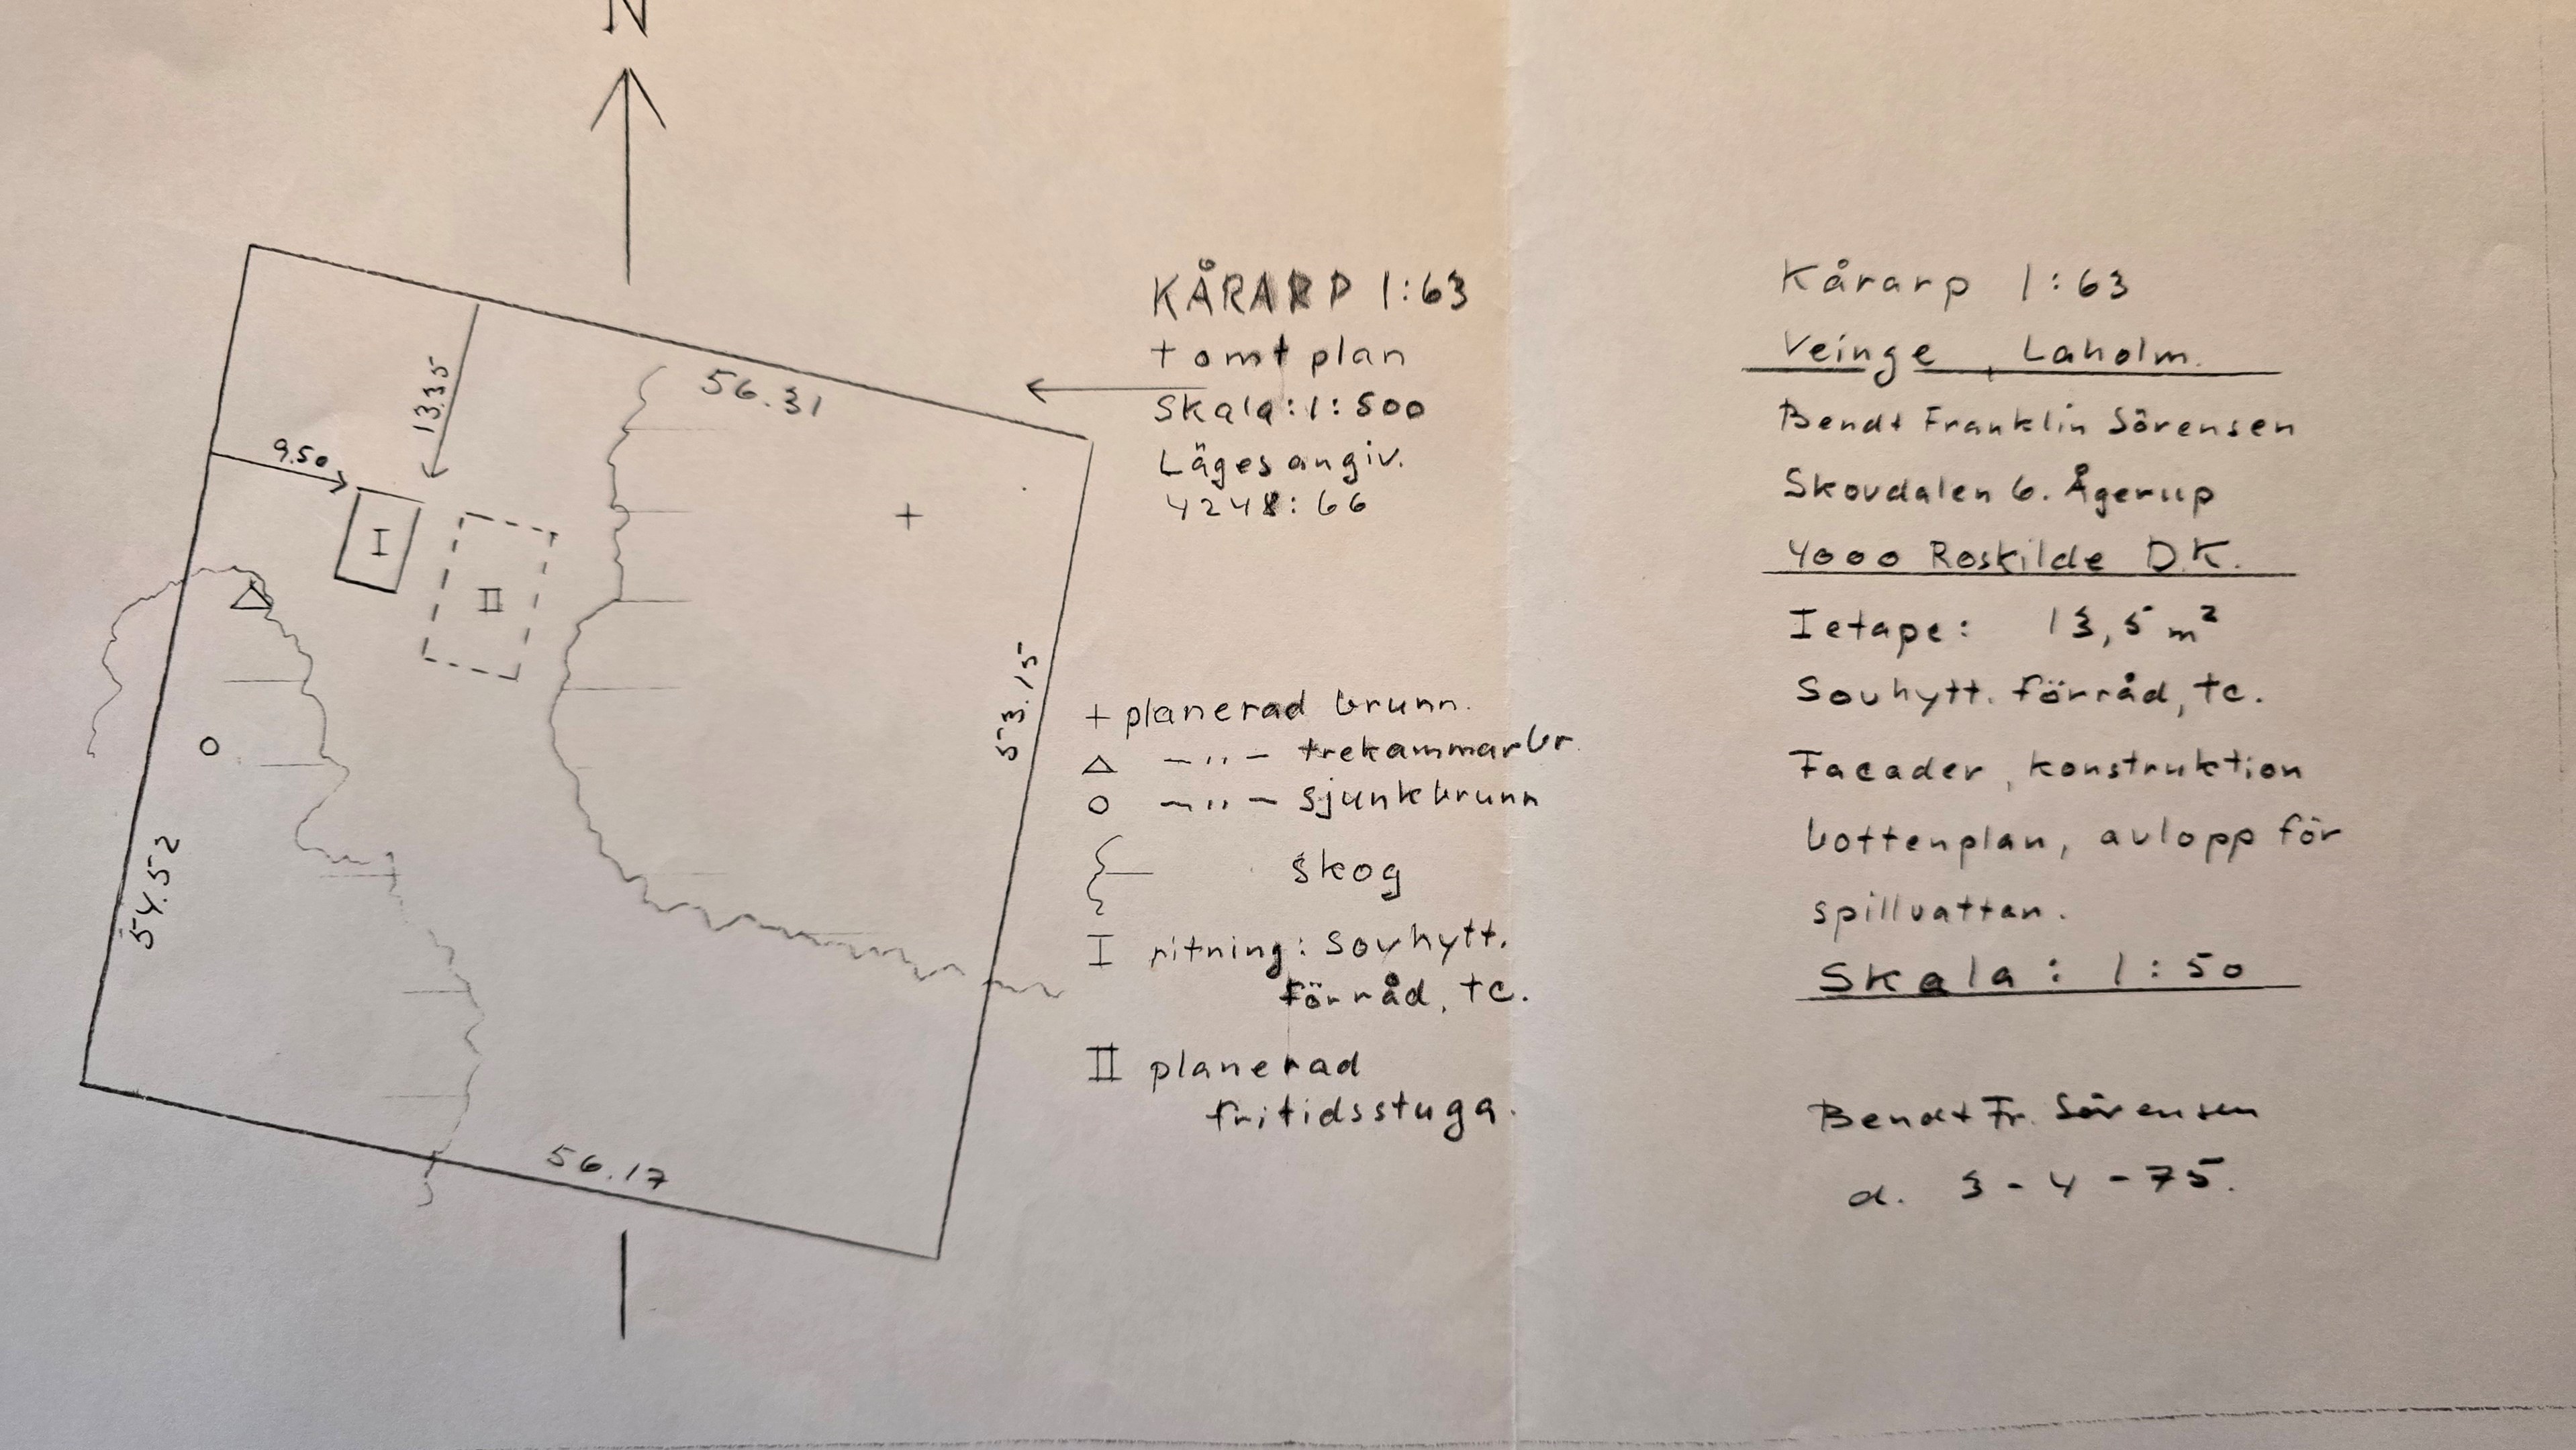 N
56.31
13.35
9.50
I
II
53.15
54.52
56.17
KÅRARP 1:63
tomtplan
Skala: 1:500
Lägesangiv.
4248:66
+ planerad brunn.
△ -"- trekammarbr.
○ -"- sjunkbrunn
skog
I ritning: Sovhytt.
förråd, tc.
II planerad
fritidsstuga.
Kårarp 1:63
Veinge, Laholm.
Bendt Franklin Sörensen
Skovdalen 6. Ågerup
4000 Roskilde D.K.
I etape: 13,5 m²
Sovhytt. förråd, tc.
Facader, konstruktion
bottenplan, avlopp för
spillvattan.
Skala: 1:50
Bendt Fr. Sörensen
d. 3-4-75.